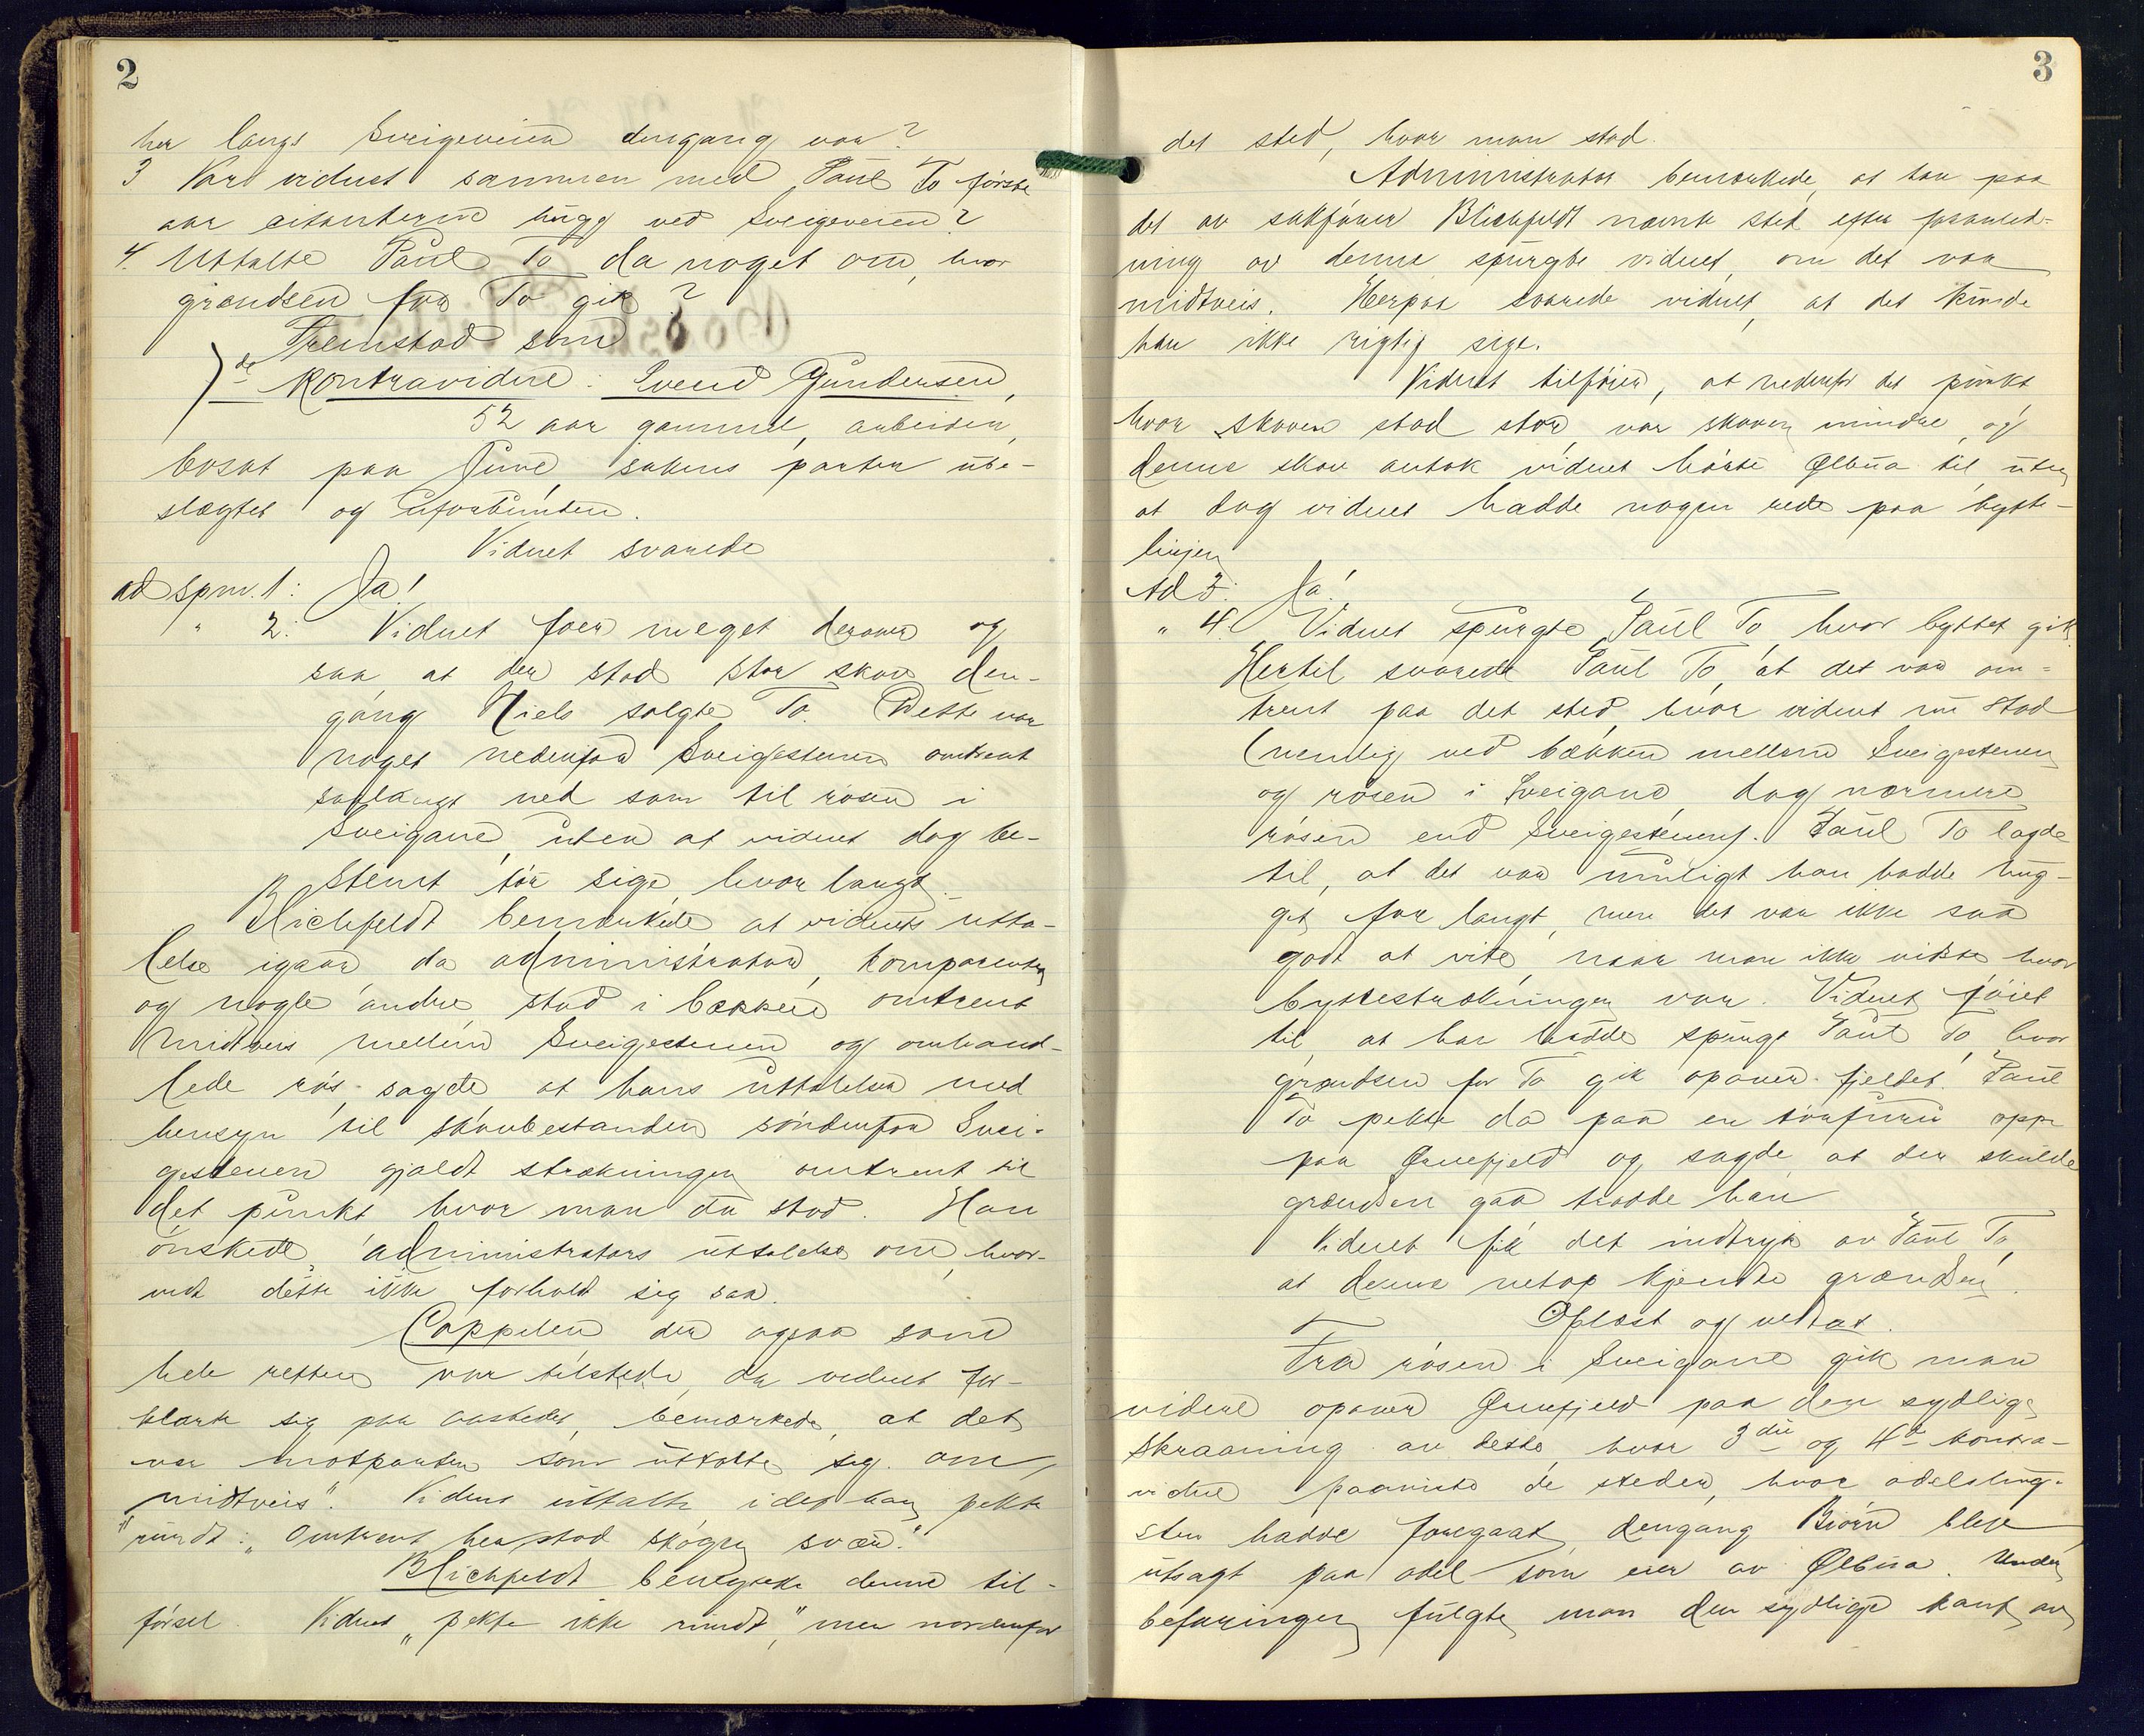 2
her langs Sveigeveien dengang var?
3 Var vidnet sammen med Paul To første
aar citanterne hugg ved Sveigeveien?
4. Uttalte Paul To da noget om, hvor
grændsen for To gik?
Fremstod som
de kontravidne: Svend Gundersen,
52 aar gammel, arbeider,
bosat paa Jüve, sakens parter ube-
slægtet og uforbunden.
Vidnet svarede
ad spm. 1: Ja!
" 2: Vidnet foer meget derover og
saa at der stod stor skov den-
gang Niels solgte To. Dette var
noget nedenfor Sveigestenen omtrent
saalangt ned som til røsen i
Sveigane, uten at vidnet dog be-
stemt tør sige, hvor langt.
Blichfeldt bemærkede at vidnets utta-
lelse igaar, da administrator, komparenten
og nogle andre stod i bækken omtrent
midtveis mellem Sveigestenen og omhand-
lede røs, sagde at hans uttalelse med
hensyn til skovbestanden søndenfor Svei-
gestenen gjaldt strækningen omtrent til
det punkt hvor man da stod. Han
ønskede administrators uttalelse om, hvor-
vidt dette ikke forholdt sig saa.
Cappelen der ogsaa som
hele retten var tilstede, da vidnet for-
klarte sig paa aastedet, bemærkede, at det
var motparten som uttalte sig om
"midtveis". Vidnet uttalte idet han pekte
rundt: "Omtrent her stod skogen svær."
Blichfeldt benegtede denne til-
førsel. Vidnet "pekte ikke rundt", men nordenfor
3
det sted, hvor man stod.
Administrator bemærkede, at han paa
det av sakfører Blichfeldt nævnte sted efter foranled-
ning av denne spurgte vidnet, om det var
midtveis. Herpaa svarede vidnet, at det kunde
han ikke rigtig sige.
Vidnet tilføier, at nedenfor det punkt
hvor skoven stod stor, var skoven mindre, og
denne skov antok vidnet hørte Ølbua til, uten
at dog vidnet hadde nogen rede paa bytte-
linjen
Ad 3. Ja!
" 4. Vidnet spurgte Paul To, hvor byttet gik.
Hertil svarede Paul To, at det var om-
trent paa det sted, hvor vidnet nu stod
(nemlig ved bækken mellem Sveigestenen
og røsen i Sveigane, dog nærmere
røsen end Sveigestenen). Paul To lagde
til, at det var muligt han hadde hug-
get for langt, men det var ikke saa
godt at vite, naar man ikke vidste hvor
byttestrækningen var. Vidnet føiet
til, at han hadde spurgt Paul To, hvor
grændsen for To gik opover fjeldet. Paul
To pekte da paa en tørfuru oppe
paa Grusefjeld og sagde, at der skulde
grændsen gaa trodde han
Vidnet fik det indtryk av Paul To,
at denne netop kjendte grændsen.
Oplæst og vedtat.
Fra røsen i Sveigane gik man
videre opover Grusefjeld paa den sydlige
skraaning av dette, hvor 3die og 4de kontra-
vidne paaviste de steder, hvor odelshug-
sten hadde foregaat, dengang Bjørn blev
utsagt paa odel som eier av Ølbua. Under
befaringen fulgte man den sydlige kant av